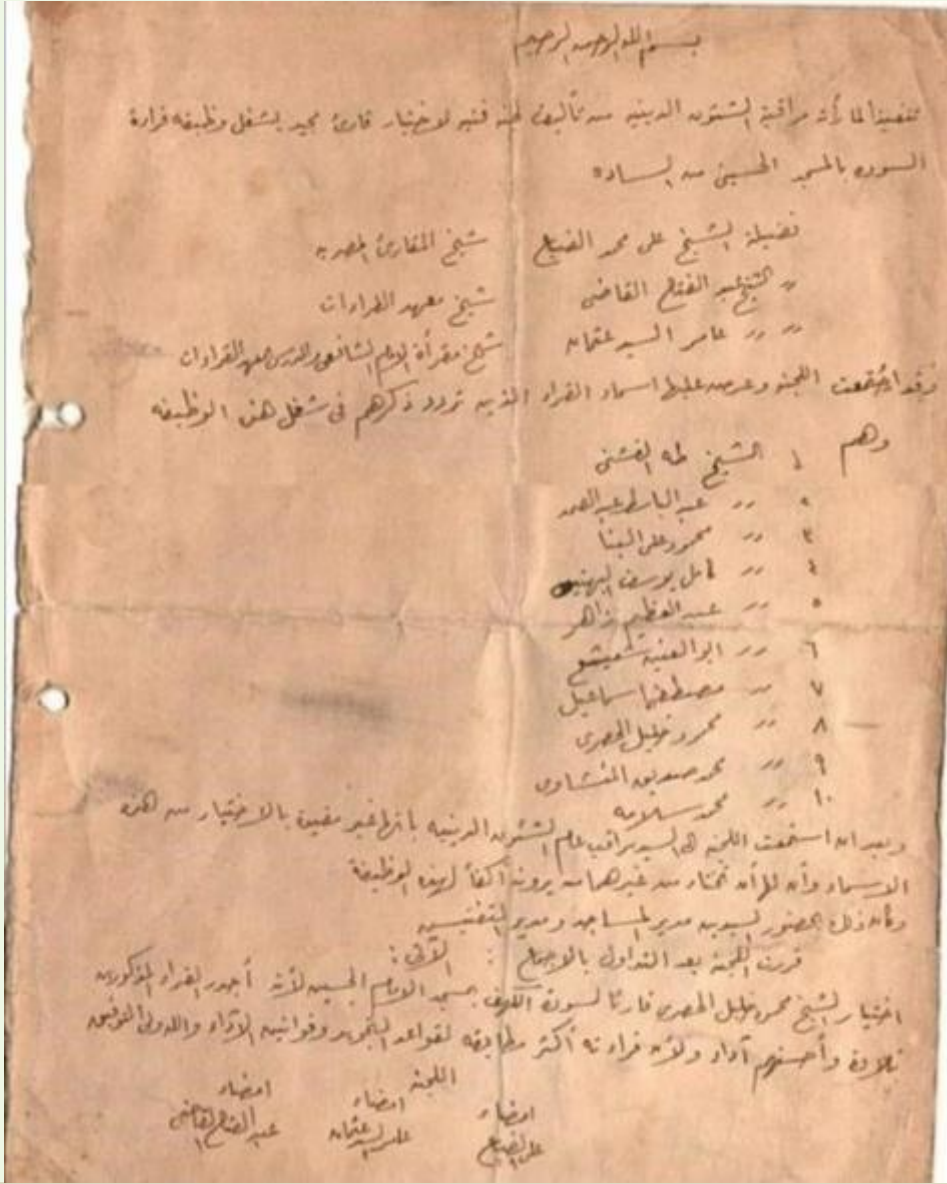 بسم الله الرحمن الرحيم
تنفيذا لما رأته مراقبة الشئون الدينيه من تأليف لجنه فنيه لاختيار قارئ مجيد يشغل وظيفه قراءة
السوره بالمسجد الحسينى من الساده
فضيلة الشيخ على محمد الضباع شيخ المقارئ المصريه
〃 الشيخ عبد الفتاح القاضى شيخ معهد القراءات
〃 〃 عامر السيد عثمان شيخ مقرأة الامام الشافعى والمدرس بمعهد القراءات
وقد اجتمعت اللجنة وعرض عليها اسماء القراء الذين تردد ذكرهم فى شغل هذه الوظيفه
وهم
١ الشيخ طه الفشنى
٢ 〃 عبد الباسط عبد الصمد
٣ 〃 محمود على البنا
٤ 〃 كامل يوسف البهتيمى
٥ 〃 عبد العظيم زاهر
٦ 〃 ابو العنين شعيشع
٧ 〃 مصطفى اسماعيل
٨ 〃 محمود خليل الحصرى
٩ 〃 محمد صديق المنشاوى
١٠ 〃 محمد سلامه
وبعد ان استمعت اللجنة الى السيد مراقب عام الشئون الدينيه بانها غير مقيدة بالاختيار من هذه
الاسماء وأن لها أن تختار من غيرهم من يرونه أكفأ لهذه الوظيفة
وكان ذلك بحضور السيدين مدير المساجد ومدير التفتيش
قررت اللجنة بعد التداول بالاجماع : الآتى :
اختيار الشيخ محمود خليل الحصرى قارئا لسورة الكهف بمسجد الامام الحسين لأنه أجدر القراء المذكورين
تلاوة وأحسنهم آداء ولأن قراءته أكثر مطابقه لقواعد التجويد وقوانين الآداء والله ولى التوفيق
اللجنه
امضاء امضاء امضاء
على الضباع عامر السيد عثمان عبد الفتاح القاضى